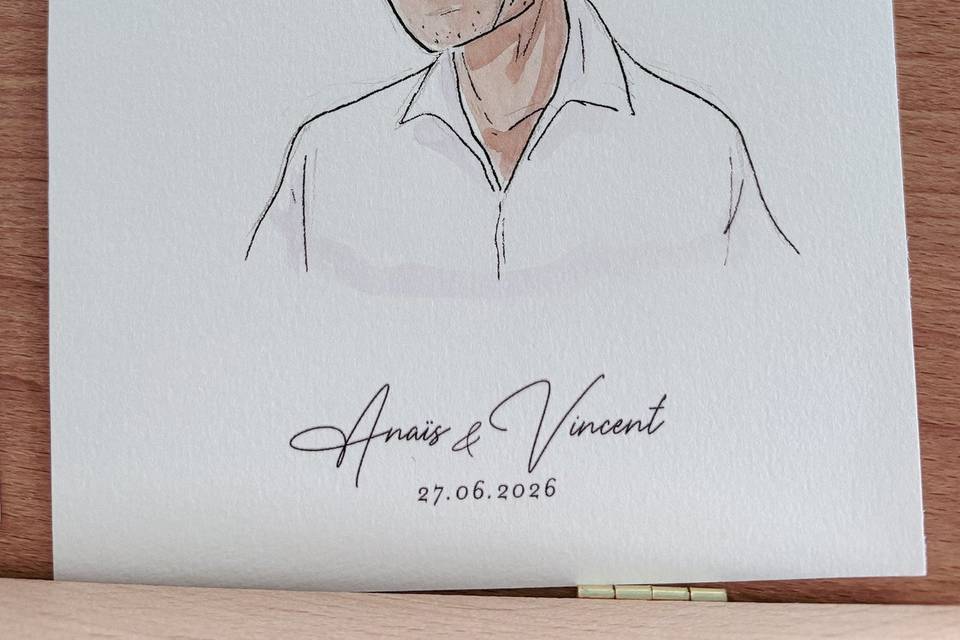 Anaïs & Vincent
27.06.2026